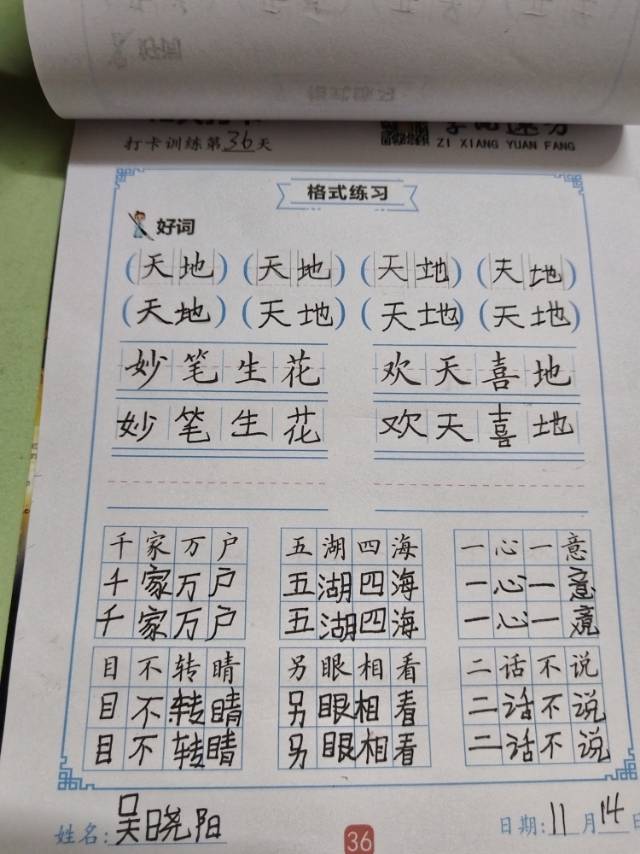 打卡训练第36天
ZI XIANG YUAN FANG
格式练习
好词
(天地) (天地) (天地) (天地)
(天地) (天地) (天地) (天地)
妙笔生花 欢天喜地
妙笔生花 欢天喜地
千家万户 五湖四海 一心一意
千家万户 五湖四海 一心一意
千家万户 五湖四海 一心一意
目不转睛 另眼相看 二话不说
目不转睛 另眼相看 二话不说
目不转睛 另眼相看 二话不说
姓名:吴晓阳 36 日期:11月14日